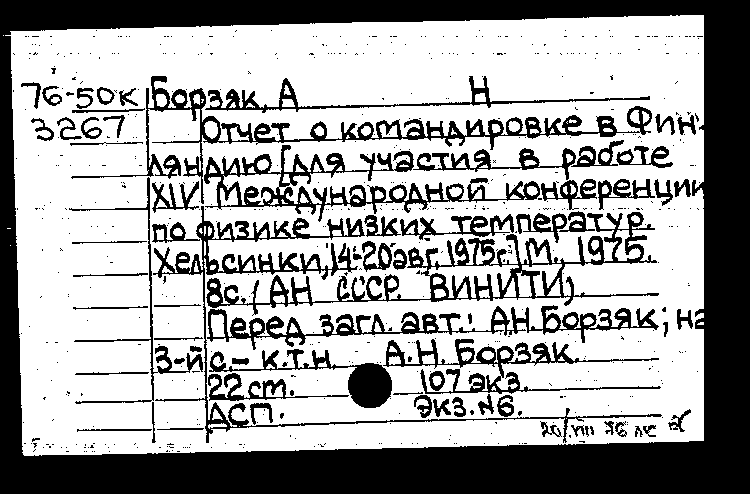 76-50к Борзяк, А Н
3267 Отчет о командировке в Фин-
ляндию [для участия в работе
XIV Международной конференции
по физике низких температур.
Хельсинки, 14-20 авг. 1975г.]. М., 1975.
8с. (АН СССР. ВИНИТИ).
Перед загл. авт.: А.Н. Борзяк; на
3-й с. – к.т.н. А.Н. Борзяк.
22 ст. 107 экз.
ДСП. Экз. №6.
20/VIII 76